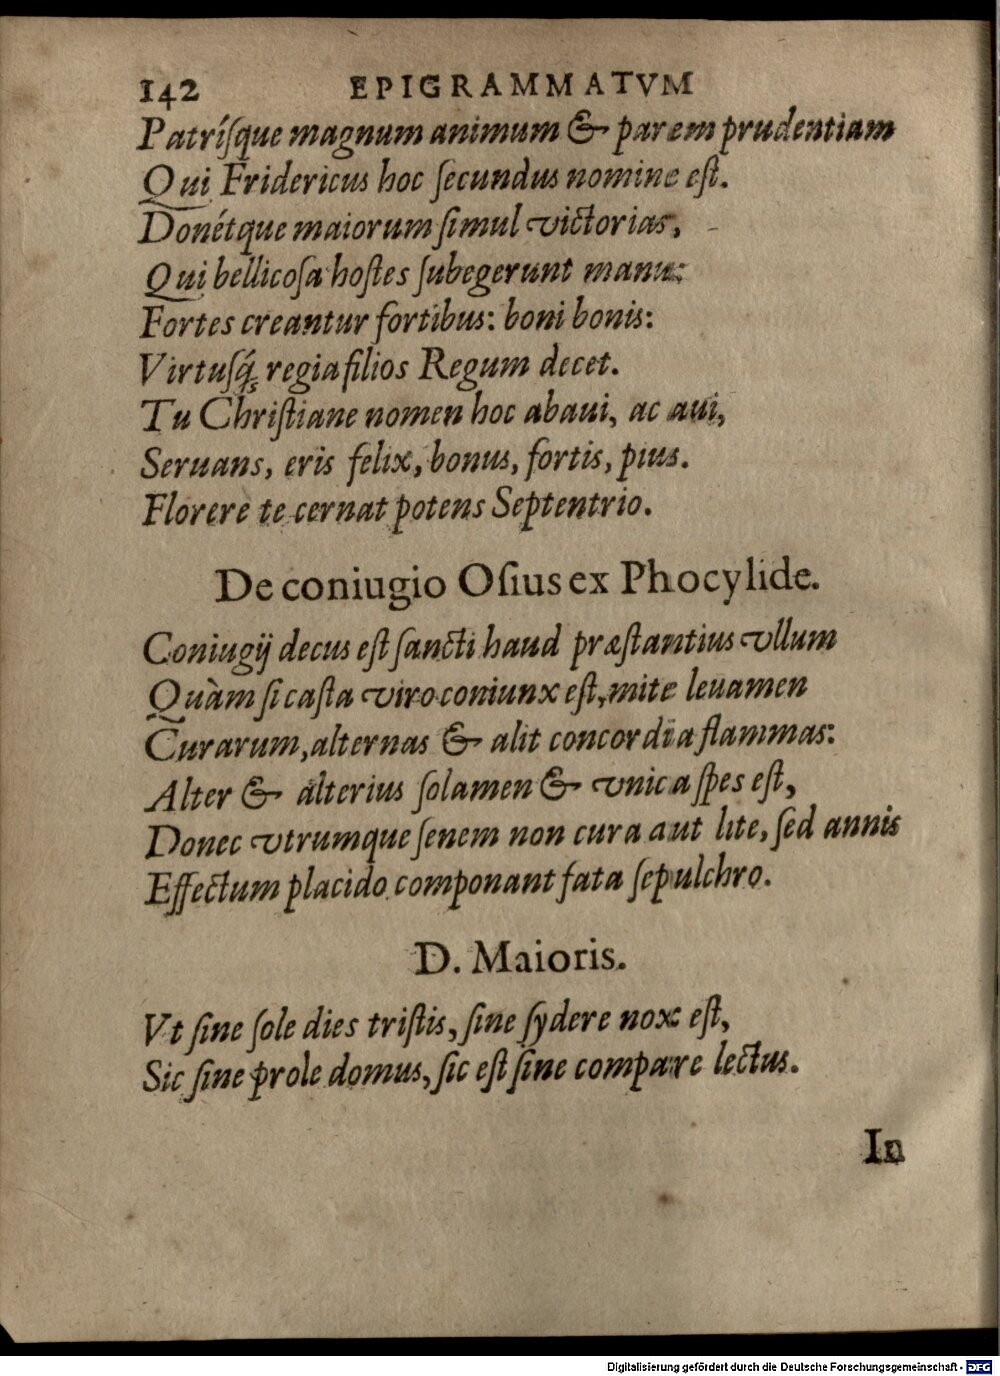 142 EPIGRAMMATVM
Patríſque magnum animum & parem prudentiam
Qui Fridericus hoc ſecundus nomine eſt.
Donétque maiorum ſimul victorias,
Qui bellicoſa hoſtes ſubegerunt manu:
Fortes creantur fortibus: boni bonis:
Virtuſq́; regia filios Regum decet.
Tu Chriſtiane nomen hoc abaui, ac aui,
Seruans, eris felix, bonus, fortis, pius.
Florere te cernat potens Septentrio.
De coniugio Oſius ex Phocylide.
Coniugij decus eſt ſancti haud præſtantius vllum
Quàm ſi caſta viro coniunx eſt, mite leuamen
Curarum, alternas & alit concordia flammas:
Alter & alterius ſolamen & vnica ſpes eſt,
Donec vtrumque ſenem non cura aut lite, ſed annis
Effectum placido componant fata ſepulchro.
D. Maioris.
Vt ſine ſole dies triſtis, ſine ſydere nox eſt,
Sic ſine prole domus, ſic eſt ſine compare lectus.
In
Digitalisierung gefördert durch die Deutsche Forschungsgemeinschaft - DFG